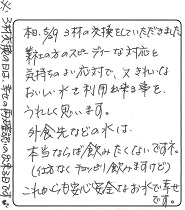 本日、5/9 3村の交換をしていただきました
業社の方のスピーディーな対応と
気持ちのよい応対で、又きれいな
おいしい水を利用出来る事を、
うれしく思います。
外食先などの水は、
本当ならば飲みたくないですネ。
(仕方なくチョッピリ飲みますけど)
これからも安心安全なお水で幸せ
です。
※3村交換の日は、幸せの再確認のお日さまです